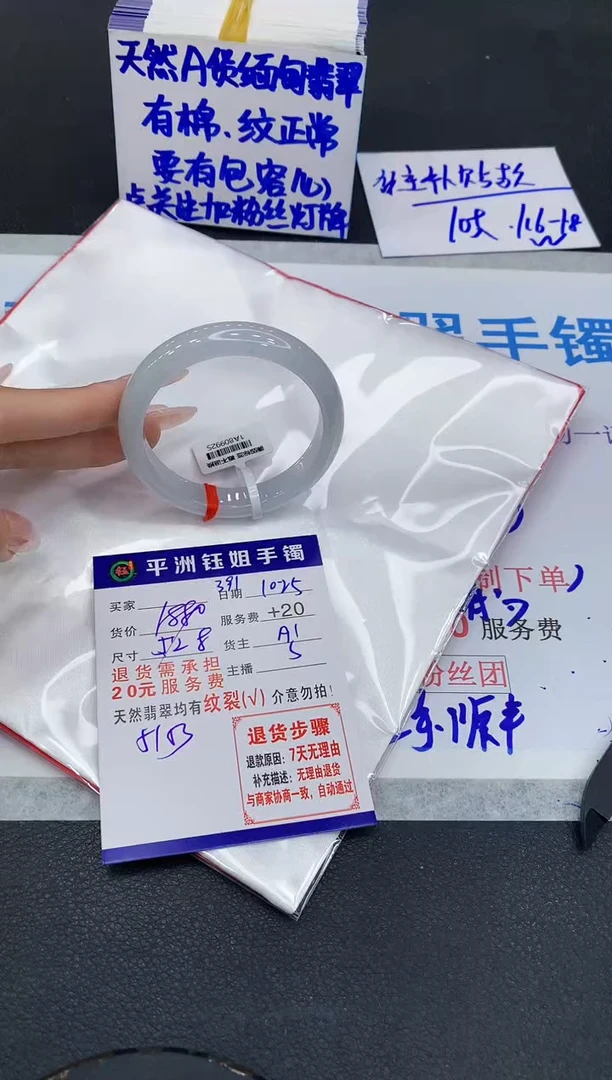 天然A货缅甸翡翠
有棉、纹正常
要有包容心
点关注加粉丝灯牌
手镯
1A809925
平洲钰姐手镯
买家
391 日期 1025
货价 1880 服务费 +20
尺寸 52.8 货主 A1
退货需承担
20元服务费
主播 5
天然翡翠均有纹裂(√)介意勿拍!
8153
退货步骤
退款原因:7天无理由
补充描述:无理由退货
与商家协商一致,自动通过
制下单)
0 服务费
粉丝团
顺丰